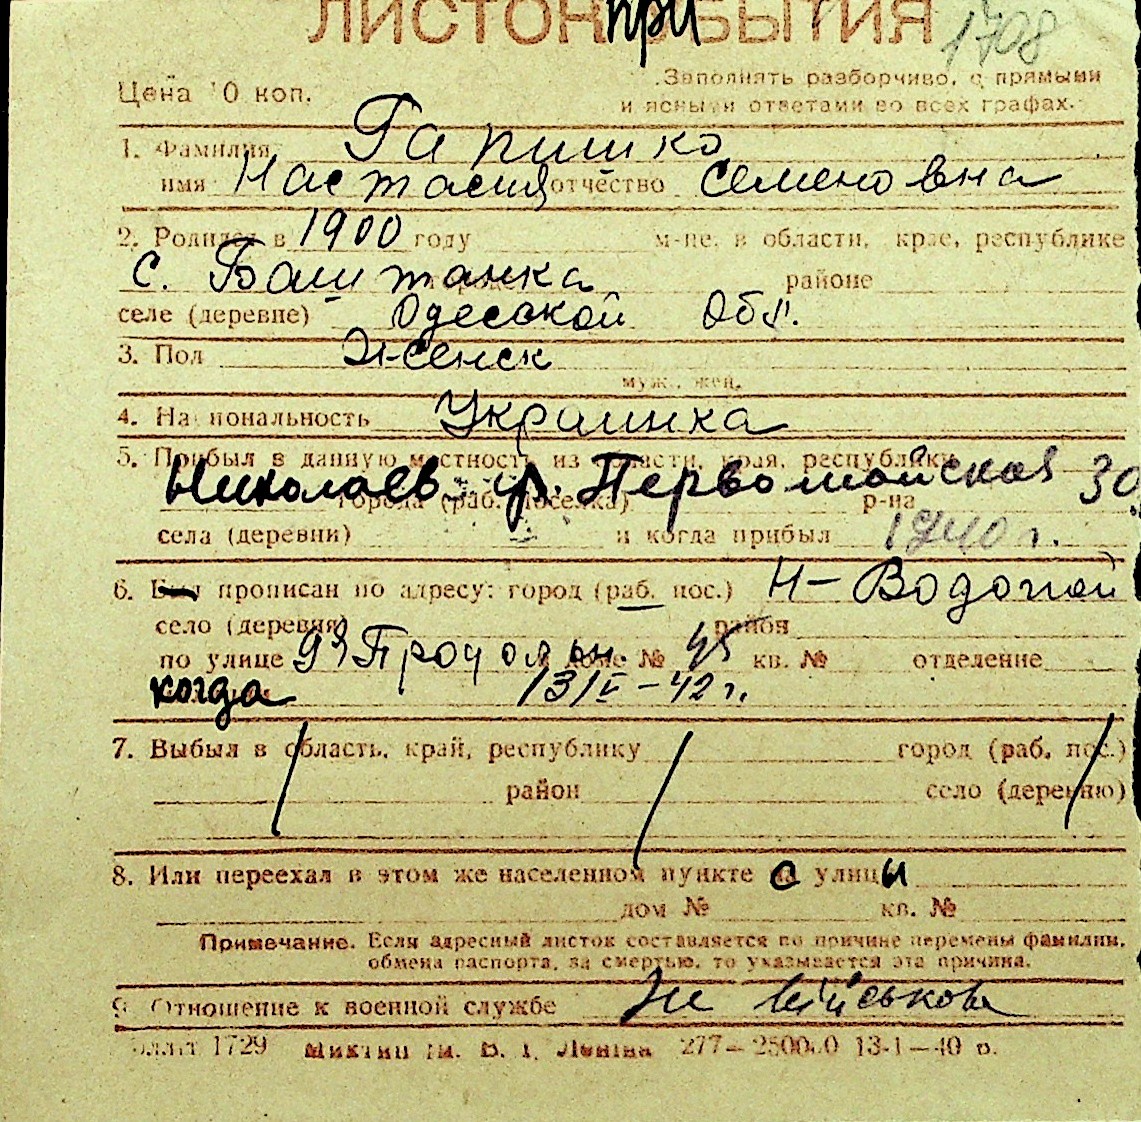 ЛИСТОК ПРИБЫТИЯ 1708
Цена 10 коп. Заполнять разборчиво, с прямыми
и ясными ответами во всех графах.
1. Фамилия Гапишко
имя Настасия отчество Семеновна
2. Родился в 1900 году м-це, в области, крае, республике
с. Баштанка районе
селе (деревне) Одесской обл.
3. Пол Женск
муж., жен.
4. Национальность Украинка
5. Прибыл в данную местность из области, края, республики
Николаев ул. Первомайская 30
города (раб. поселка) р-на
села (деревни) и когда прибыл 1940 г.
6. Был прописан по адресу: город (раб. пос.) Н-Водопой
село (деревня) район
по улице 9 Продольн. доме № 45 кв. № отделение
когда 13/V-42 г.
7. Выбыл в область, край, республику город (раб. пос.)
район село (деревню)
8. Или переехал в этом же населенном пункте с улицы
дом № кв. №
Примечание. Если адресный листок составляется по причине перемены фамилии,
обмена паспорта, за смертью, то указывается эта причина.
9. Отношение к военной службе Не військова
1729 Ленiна 277— 250000 13-1—40 р.